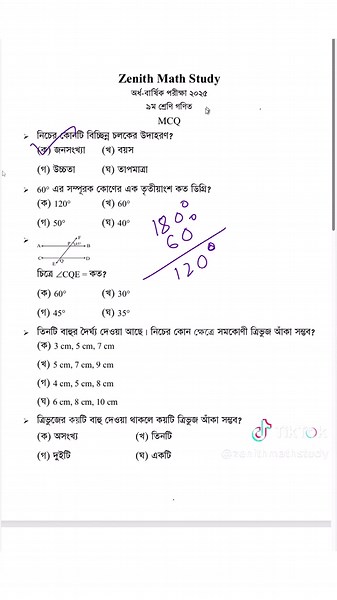 Zenith Math Study
অর্ধ-বার্ষিক পরীক্ষা ২০২৫
৯ম শ্রেণি গণিত
MCQ
➢ নিচের কোনটি বিচ্ছিন্ন চলকের উদাহরণ?
(ক) জনসংখ্যা (খ) বয়স
(গ) উচ্চতা (ঘ) তাপমাত্রা
➢ 60° এর সম্পূরক কোণের এক তৃতীয়াংশ কত ডিগ্রি?
(ক) 120° (খ) 60°
(গ) 50° (ঘ) 40°
180°
60°
120°
A P F B
C Q D
E
চিত্রে ∠CQE = কত?
(ক) 60° (খ) 30°
(গ) 45° (ঘ) 35°
➢ তিনটি বাহুর দৈর্ঘ্য দেওয়া আছে। নিচের কোন ক্ষেত্রে সমকোণী ত্রিভুজ আঁকা সম্ভব?
(ক) 3 cm, 5 cm, 7 cm
(খ) 5 cm, 7 cm, 9 cm
(গ) 4 cm, 5 cm, 8 cm
(ঘ) 6 cm, 8 cm, 10 cm
➢ ত্রিভুজের কয়টি বাহু দেওয়া থাকলে কয়টি ত্রিভুজ আঁকা সম্ভব?
(ক) অসংখ্য (খ) তিনটি
(গ) দুইটি (ঘ) একটি
TikTok
@zenithmathstudy